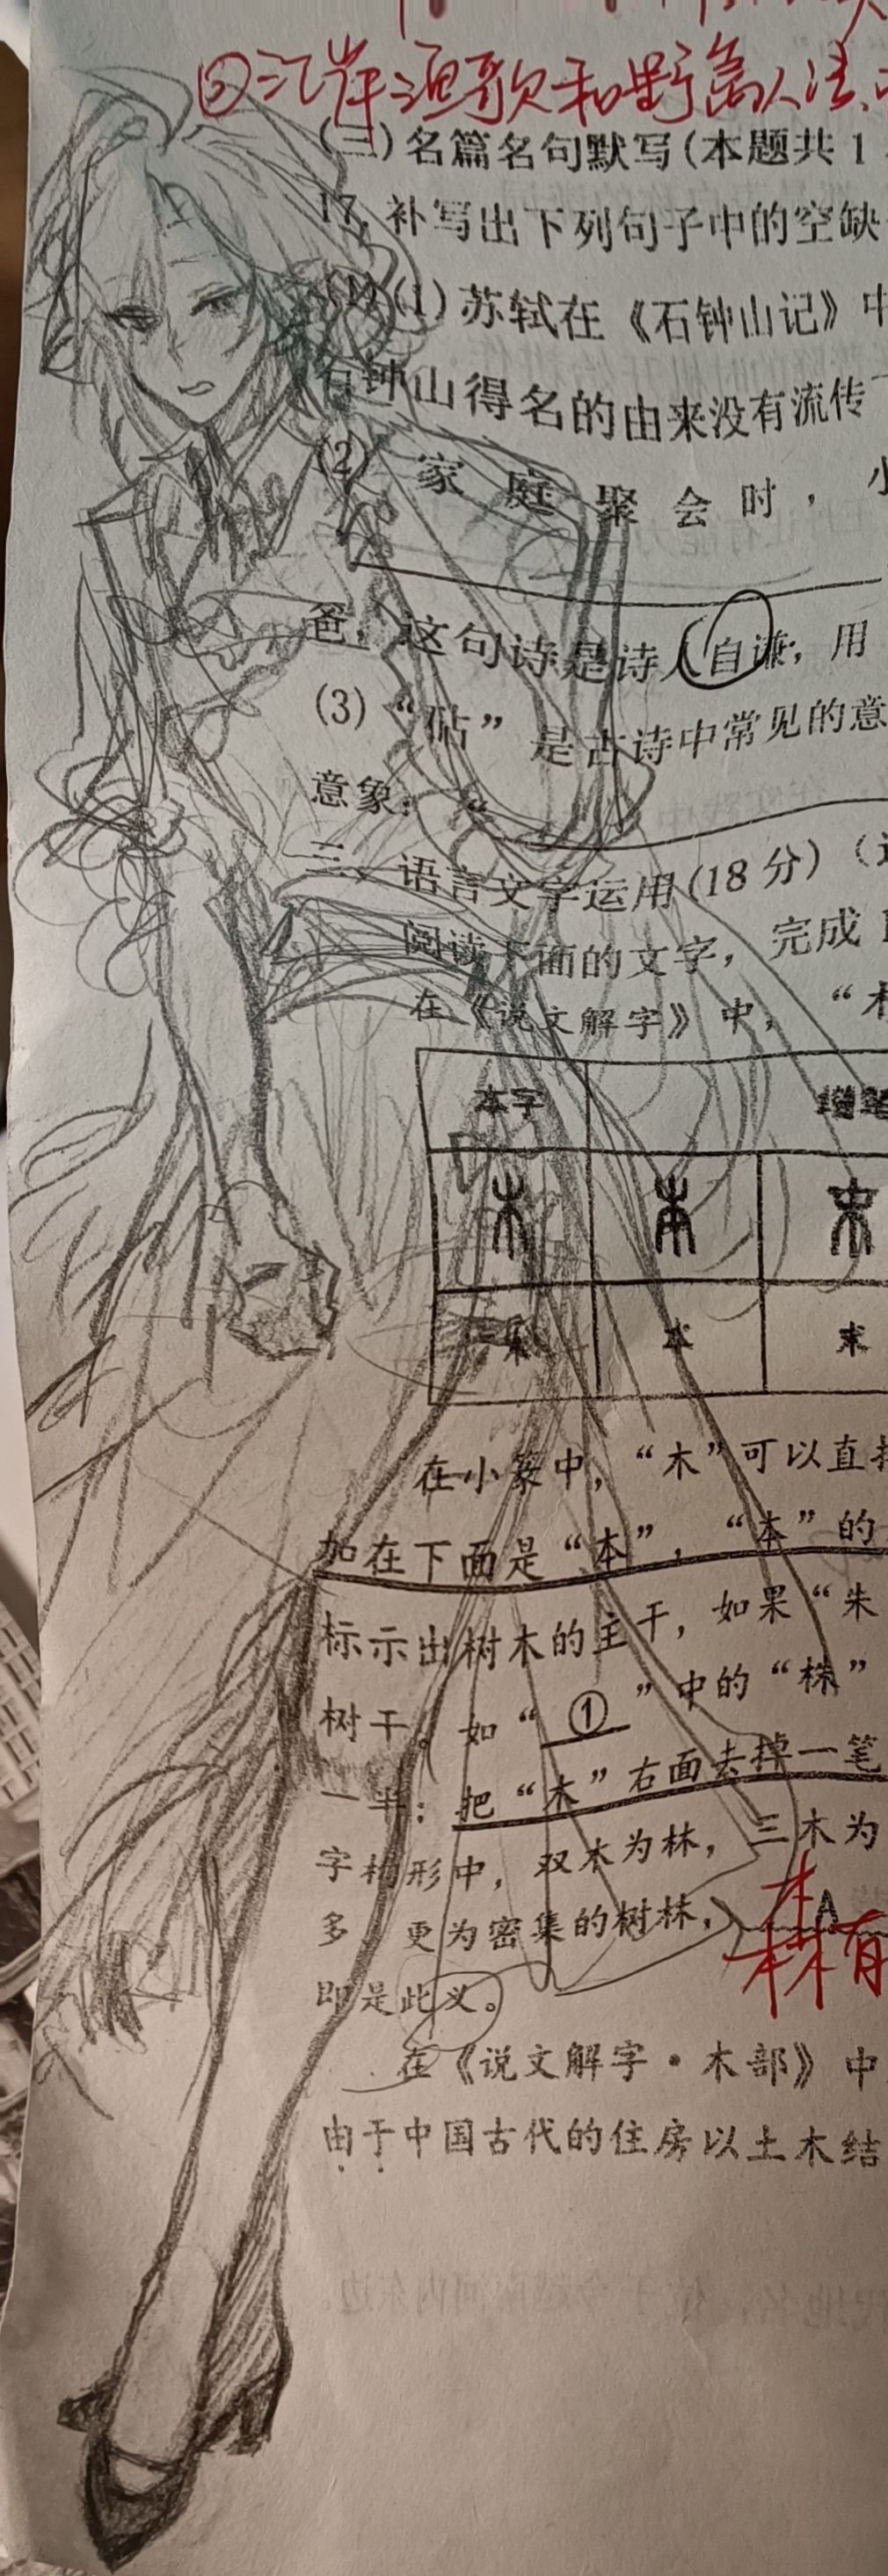 ②江岸渔歌和野禽
(三)名篇名句默写(本题共1
17.补写出下列句子中的空缺
(1)(1)苏轼在《石钟山记》中
石钟山得名的由来没有流传
(2) 家庭聚会时，小
爸，这句诗是诗人自谦，用
(3)“砧”是古诗中常见的意
意象：“
三、语言文字运用(18分)
阅读下面的文字，完成
在《说文解字》中，“木
本字 增笔
木 本 末
木 本 末
在小篆中，“木”可以直接
加在下面是“本”，“本”的
标示出树木的主干，如果“朱
树干。如“①”中的“株”
一半；把“木”右面去掉一笔
字构形中，双木为林，三木为
多、更为密集的树林，A
森有
即是此义。
在《说文解字·木部》中
由于中国古代的住房以土木结